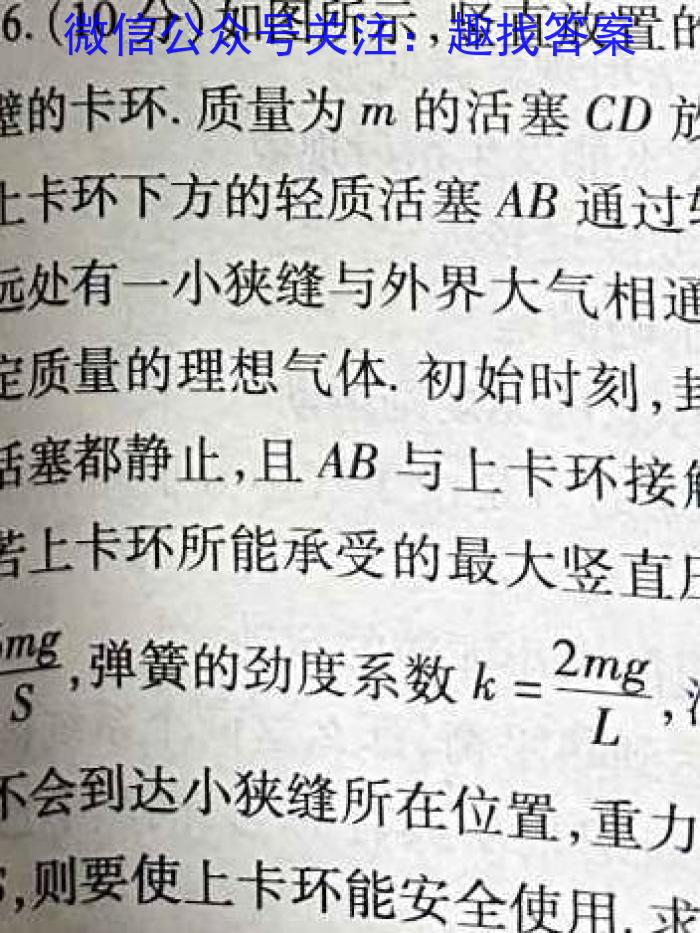 6.(10分)如图所示,竖直放置的
微信公众号关注:趣找答案
壁的卡环.质量为 m 的活塞 CD 放
上卡环下方的轻质活塞 AB 通过
远处有一小狭缝与外界大气相通
定质量的理想气体.初始时刻,封
活塞都静止,且 AB 与上卡环接触
若上卡环所能承受的最大竖直压
mg/S,弹簧的劲度系数 k = 2mg/L,
不会到达小狭缝所在位置,重力
,则要使上卡环能安全使用.求